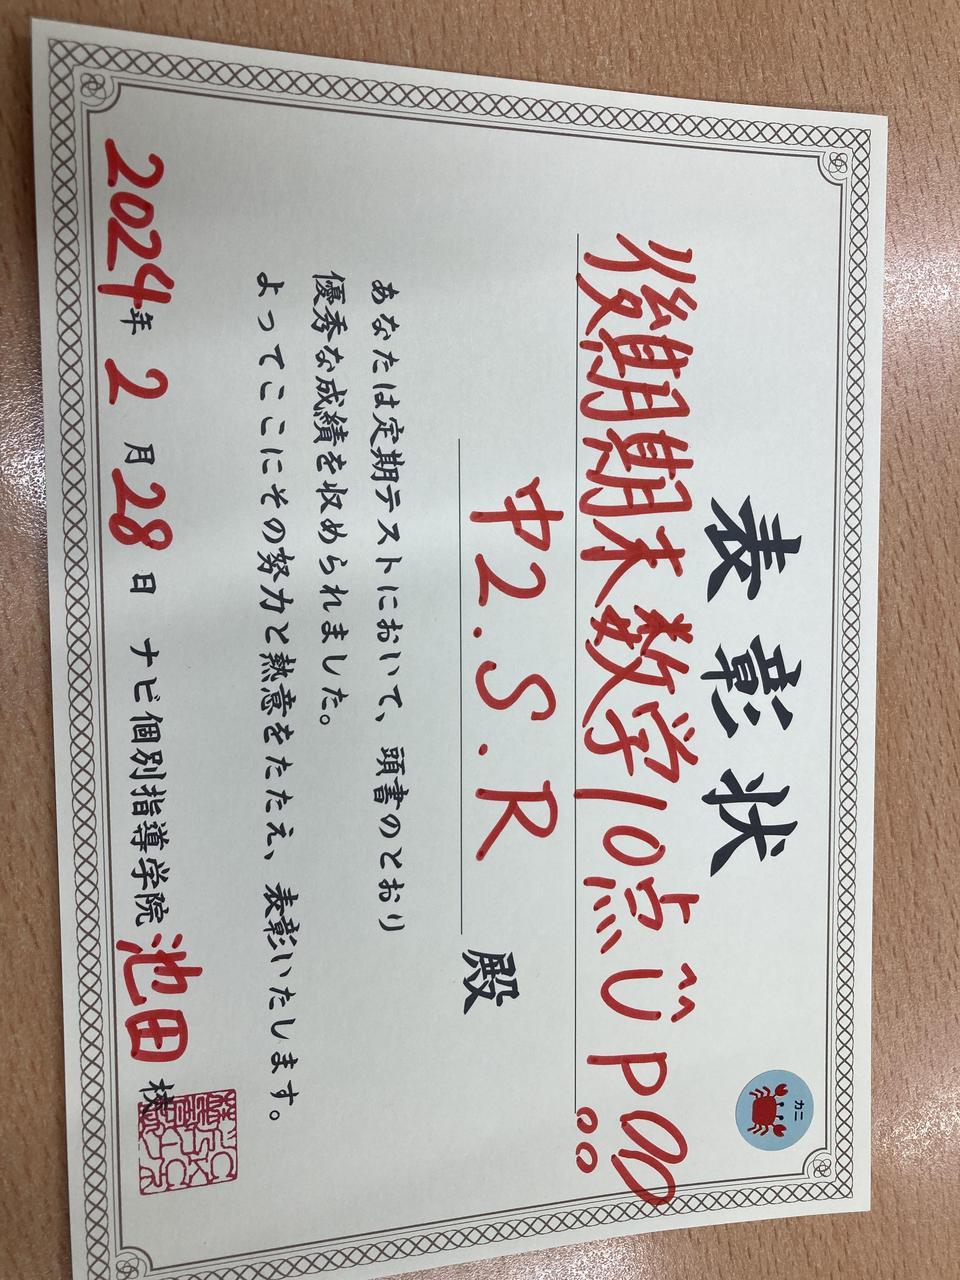 表彰状
カニ
後期期末数学10点UP!!
中2.S.R 殿
あなたは定期テストにおいて、頭書のとおり
優秀な成績を収められました。
よってここにその努力と熱意をたたえ、表彰いたします。
2024年2月28日 ナビ個別指導学院 池田 校